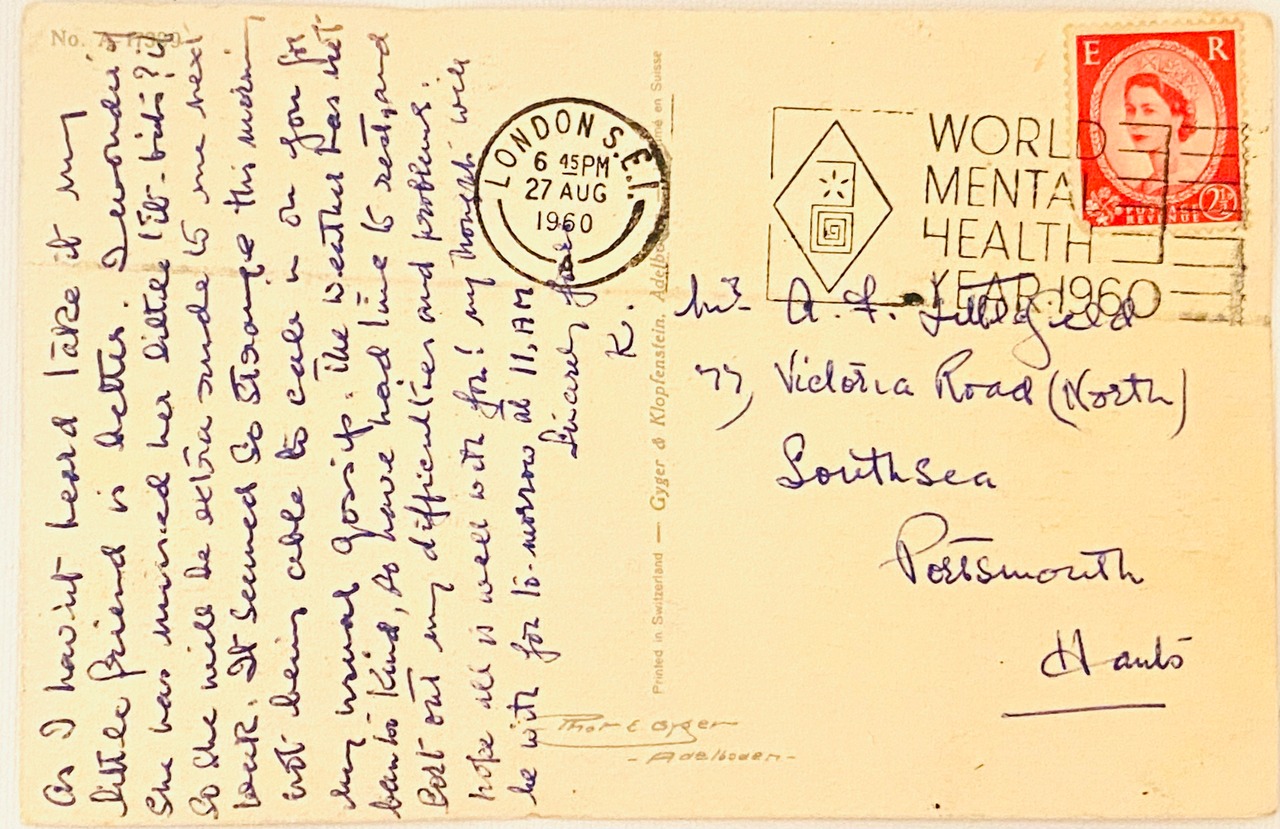 No. A 17339
As I havint heard I take it my
little friend is better. I wonder if
she has missed her little tit-bits? if
so she will be extra rude to me next
week. It seemed so strange this morning
not being able to call in on you for
my usual gossip. The weather has not
been too kind, so have had time to rest, and
sort out my difficulties and problems.
hope all is well with you! my thoughts will
be with you to-morrow at 11, AM
Sincerely yours
K.
Printed in Switzerland — Gyger & Klopfenstein, Adelboden en Suisse
LONDON S.E.1.
6 45PM
27 AUG
1960
WORLD
MENTAL
HEALTH
YEAR 1960
E R
POSTAGE
REVENUE
2½D
Mrs A. F. Littlefield
77, Victoria Road (North)
Southsea
Portsmouth
Hants
Phot E. Gyger
- Adelboden -